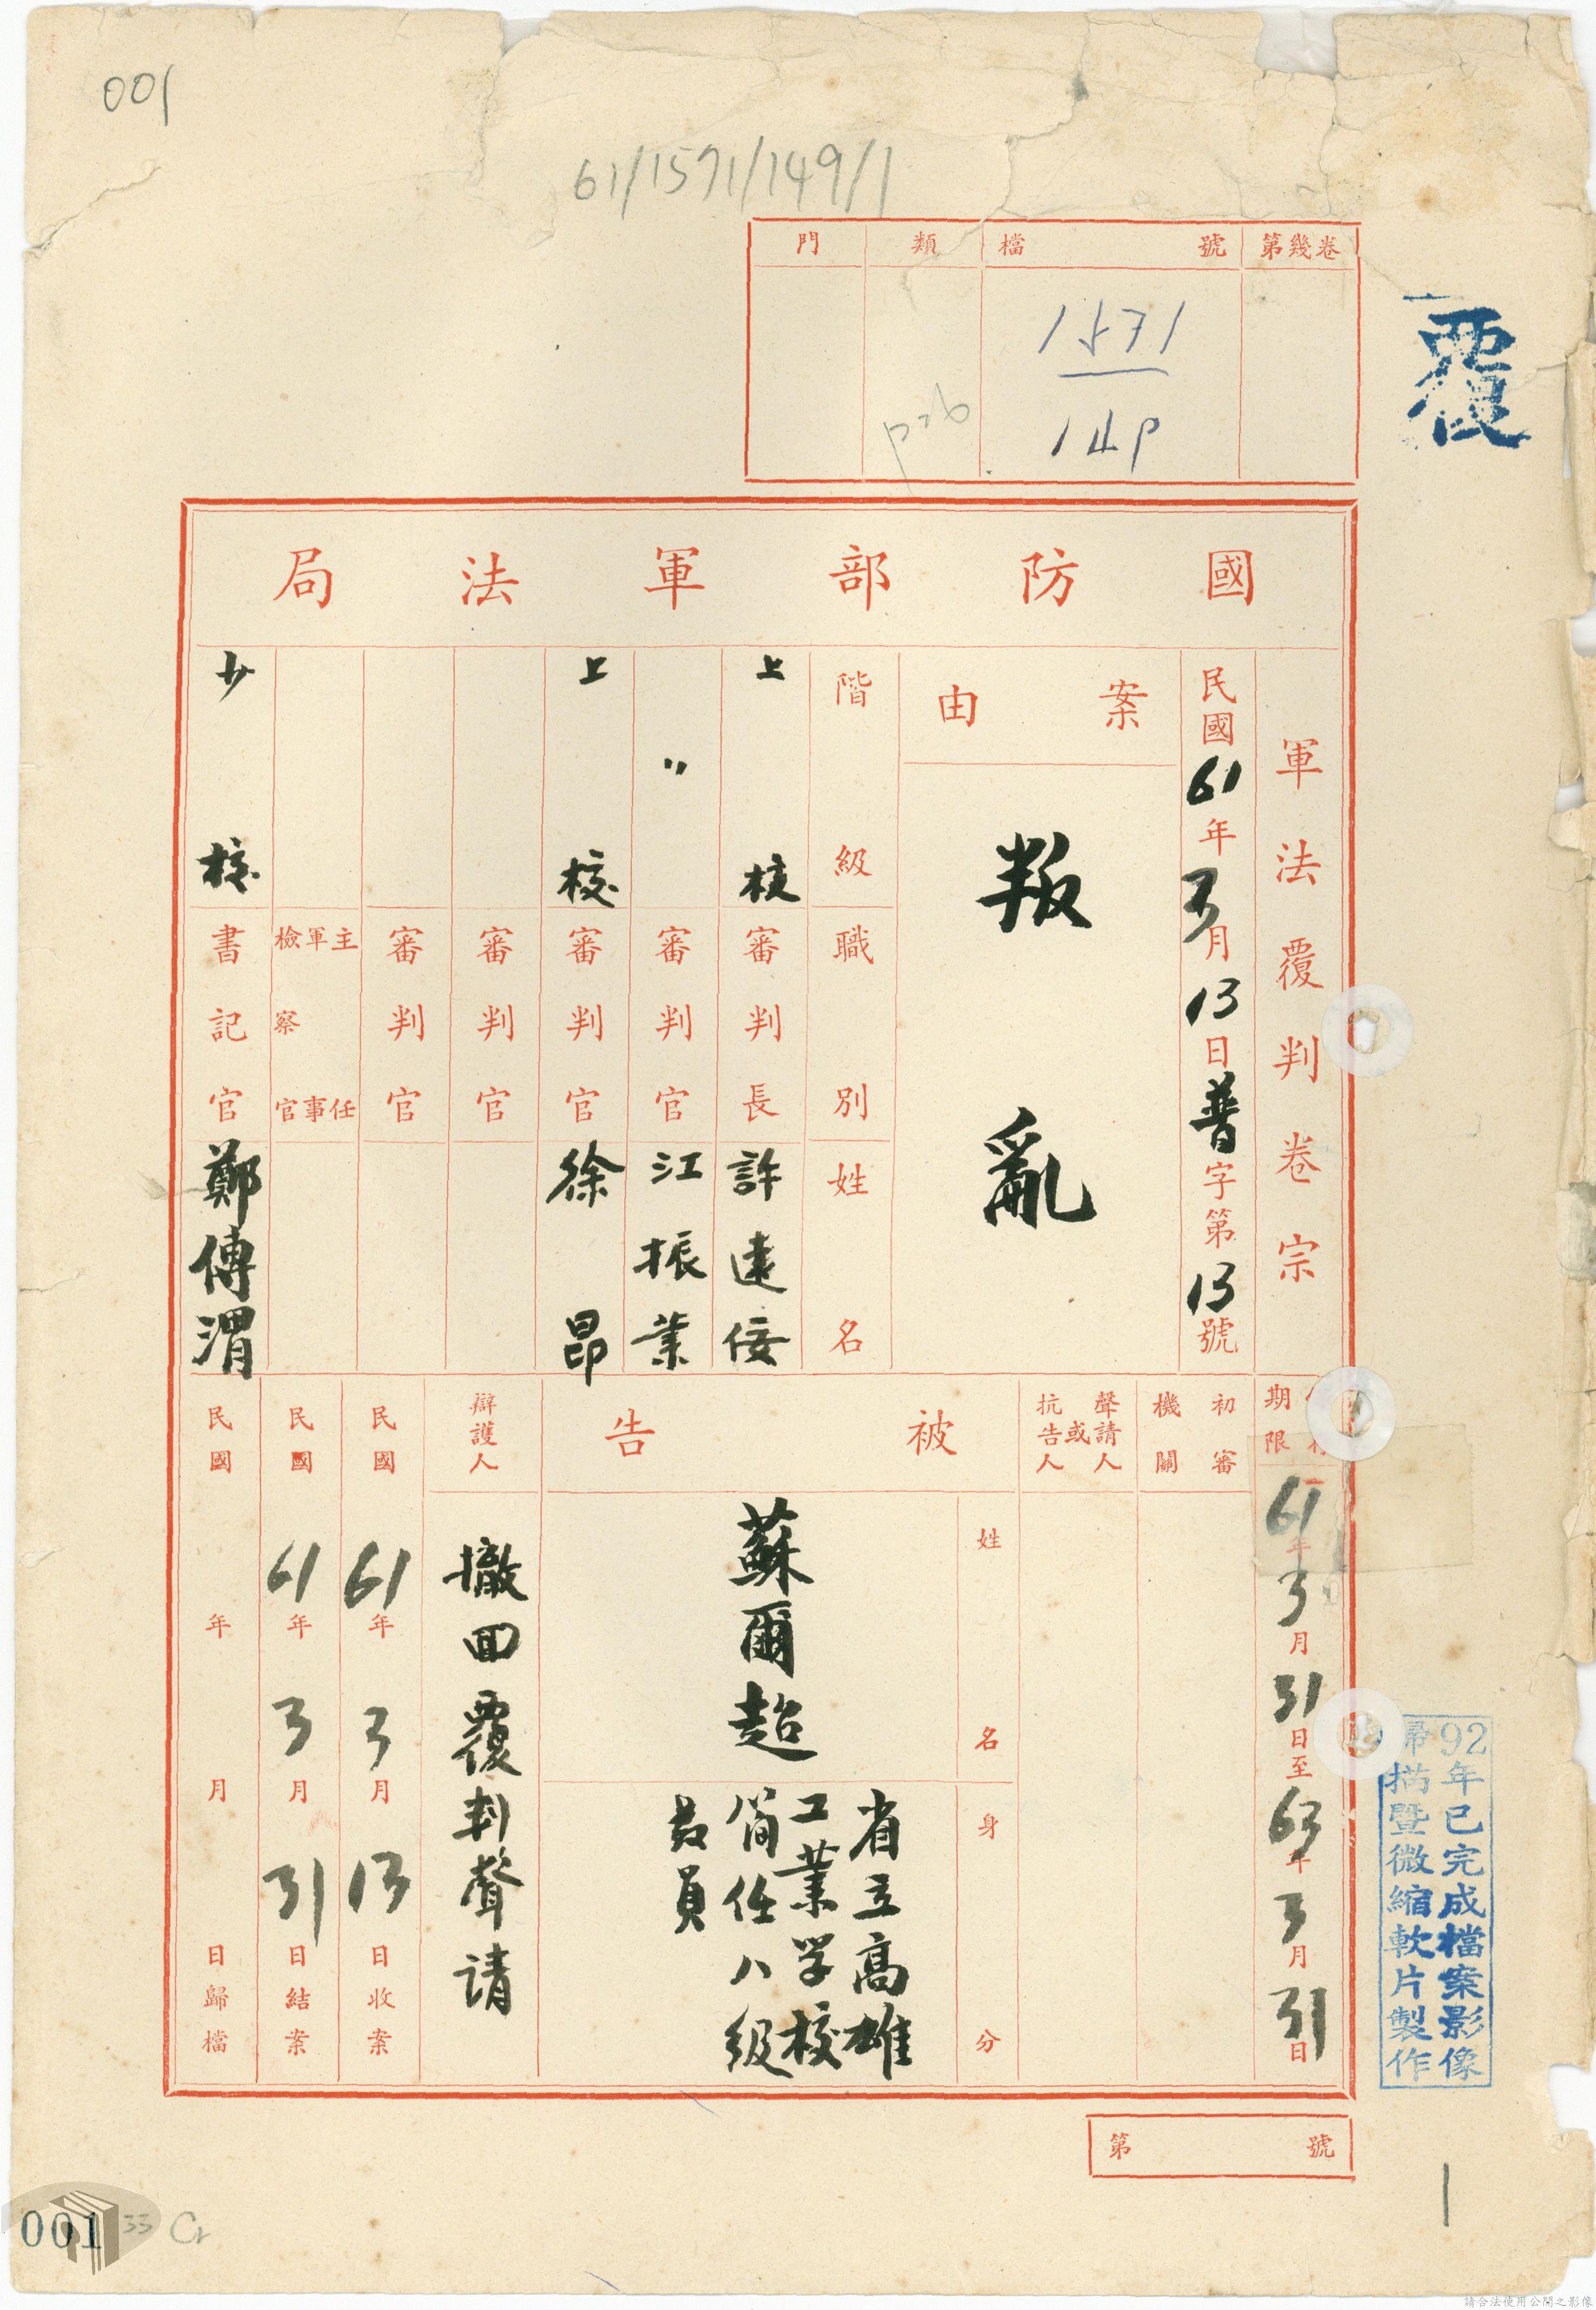 001
61/1571/149/1
第幾卷
檔號
類
門
1571
149
覆
國防部軍法局
軍法覆判卷宗
民國61年3月13日普字第13號
案由
叛亂
階級
職別
姓名
上校 審判長 許遠倭
〃 審判官 江振業
上校 審判官 徐昂
審判官
審判官
主任軍事檢察官
少校 書記官 鄭傳渭
期限
61年3月31日至63年3月31日
初審機關
聲請人或抗告人
被告
姓名
蘇爾超
身分
省立高雄
工業学校
簡任八級
教員
辯護人
撤回覆判聲請
民國61年3月13日收案
民國61年3月31日結案
民國 年 月 日歸檔
92年已完成檔案影像
掃描暨微縮軟片製作
第 號
001
33
請合法使用公開之影像